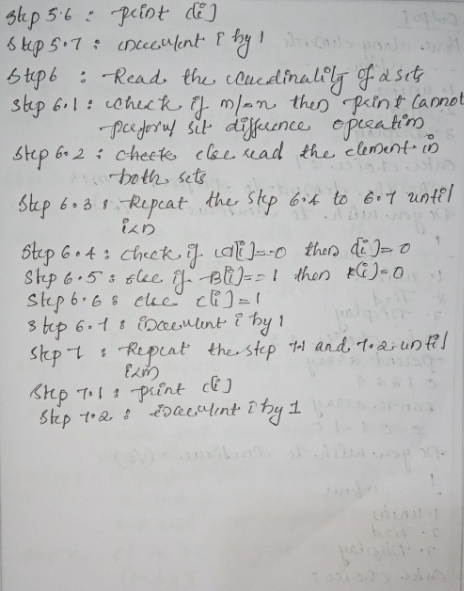 Step 5.6 : print c[i]
Step 5.7 : increment i by 1
Step 6 : Read the cardinality of 2 sets
Step 6.1 : check if m!=n then print cannot
perform set difference operation
Step 6.2 : check else read the element in
both sets
Step 6.3 : Repeat the step 6.4 to 6.7 until
i<n
Step 6.4 : check if A[i]==0 then c[i]=0
Step 6.5 : else if B[i]==1 then c[i]=0
Step 6.6 : else c[i]=1
Step 6.7 : increment i by 1
Step 7 : Repeat the step 7.1 and 7.2 until
i<m
Step 7.1 : print c[i]
Step 7.2 : increment i by 1